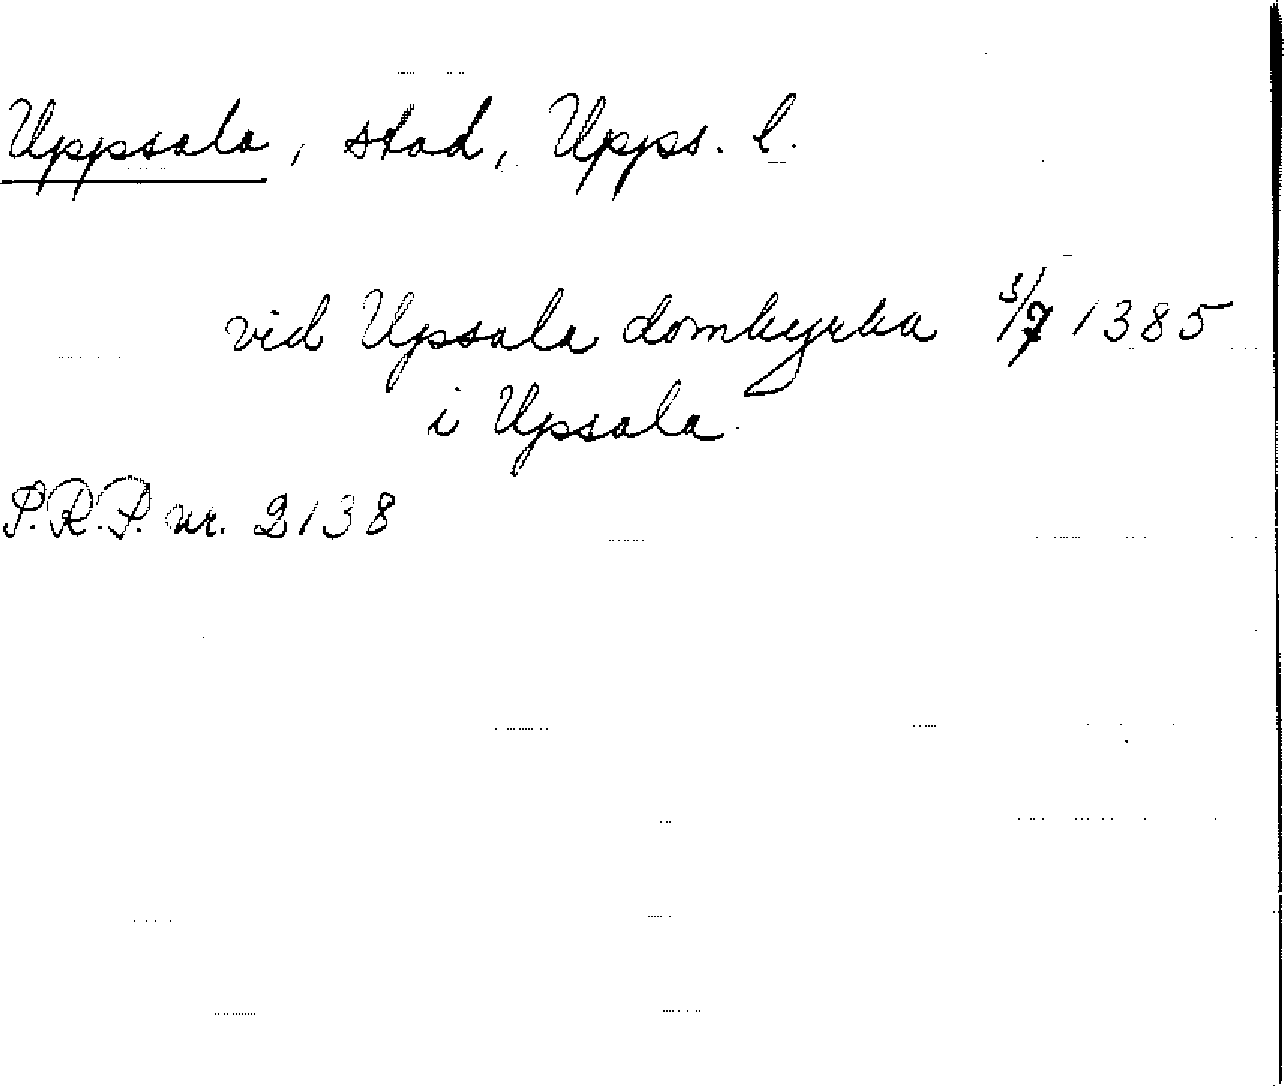 Uppsala, stad, Upps. l.
vid Upsala domkyrka 5/7 1385
i Upsala.
S.R.P. nr. 2138